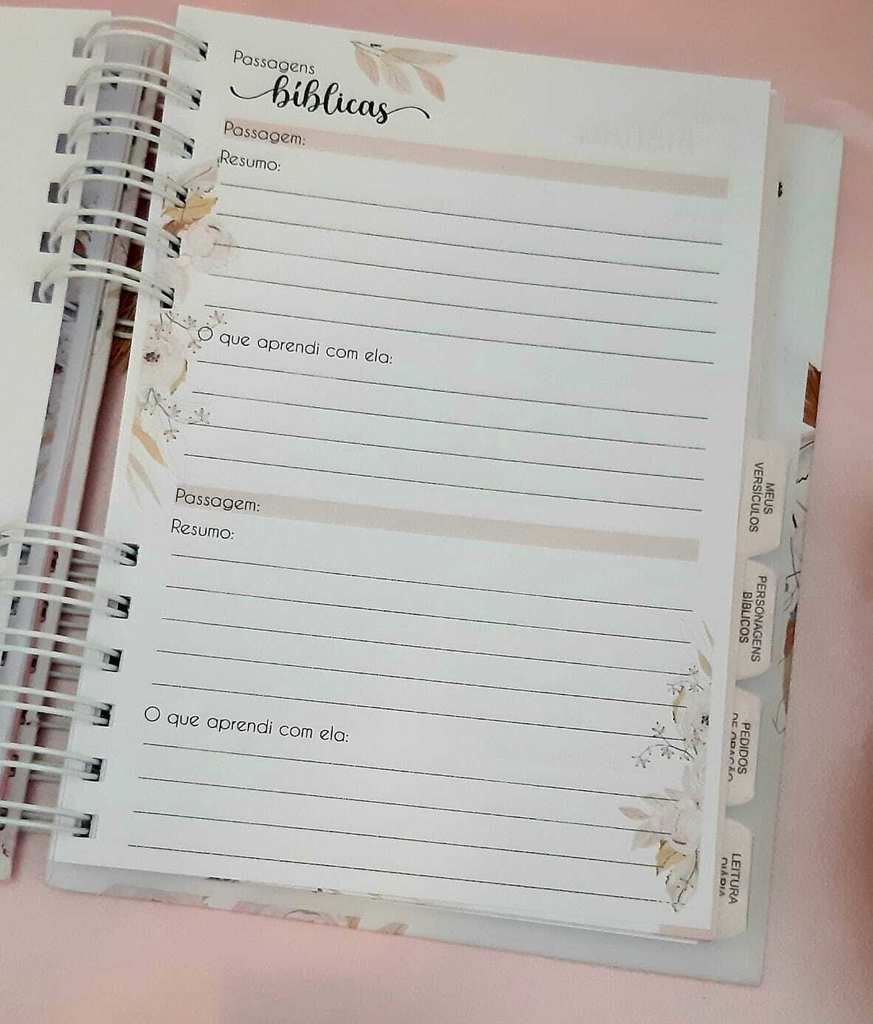 Passagens
bíblicas
Passagem:
Resumo:
O que aprendi com ela:
Passagem:
Resumo:
O que aprendi com ela:
MEUS
VERSÍCULOS
PERSONAGENS
BÍBLICOS
PEDIDOS
DE ORAÇÃO
LEITURA
DIÁRIA